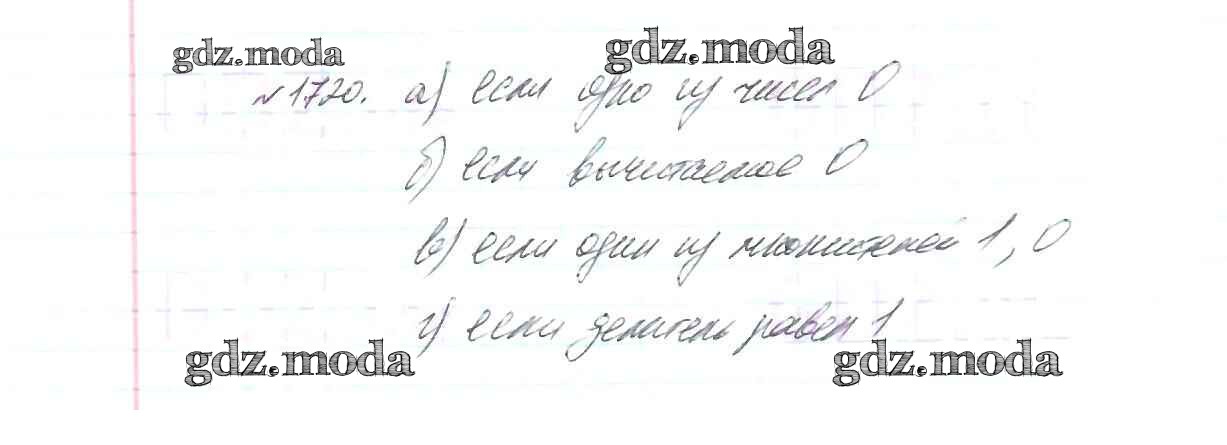 gdz.moda gdz.moda
№1720. а) если одно из чисел 0
б) если вычитаемое 0
в) если один из множителей 1, 0
г) если делитель равен 1
gdz.moda gdz.moda